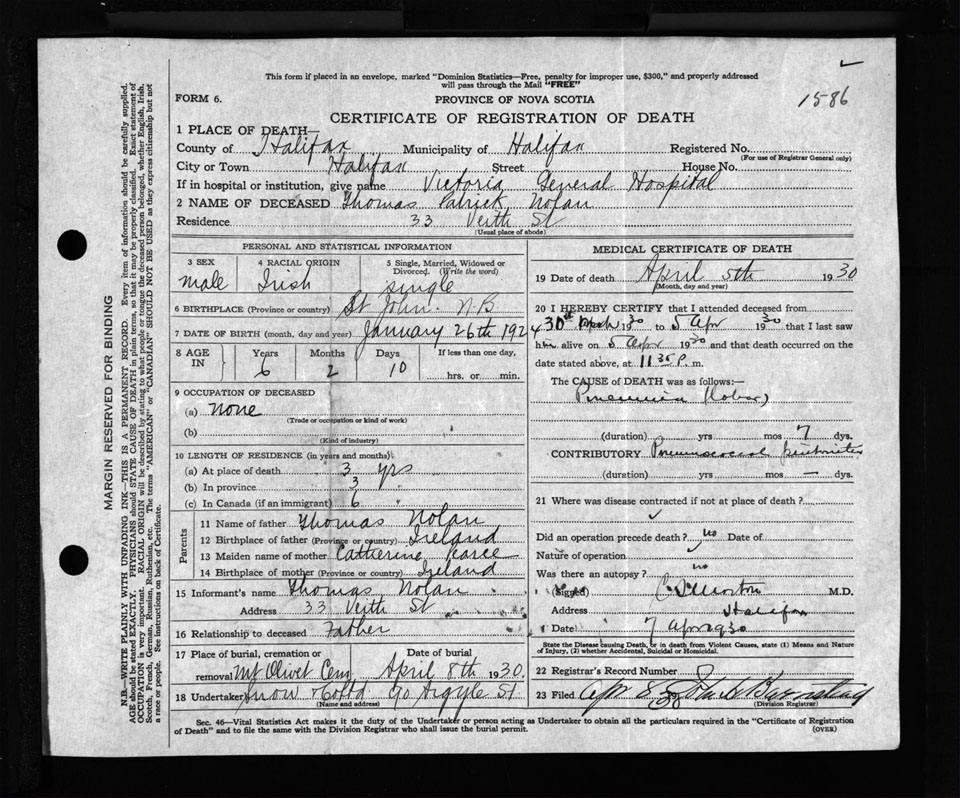 This form if placed in an envelope, marked "Dominion Statistics—Free, penalty for improper use, $300," and properly addressed
will pass through the Mail "FREE"
1586
FORM 6.
PROVINCE OF NOVA SCOTIA
CERTIFICATE OF REGISTRATION OF DEATH
1 PLACE OF DEATH—
County of Halifax Municipality of Halifax Registered No.
(For use of Registrar General only)
City or Town Halifax Street House No.
If in hospital or institution, give name Victoria General Hospital
2 NAME OF DECEASED Thomas Patrick Nolan
Residence 33 Veith St
(Usual place of abode)
PERSONAL AND STATISTICAL INFORMATION
3 SEX 4 RACIAL ORIGIN 5 Single, Married, Widowed or
Divorced. (Write the word)
male Irish single
6 BIRTHPLACE (Province or country) St John. N.B
7 DATE OF BIRTH (month, day and year) January 26th 1924
8 AGE IN Years Months Days If less than one day,
6 2 10 hrs. or min.
9 OCCUPATION OF DECEASED
(a) none
(Trade or occupation or kind of work)
(b)
(Kind of industry)
10 LENGTH OF RESIDENCE (in years and months)
(a) At place of death 3 yrs
(b) In province 3 "
(c) In Canada (if an immigrant) 6 "
Parents
11 Name of father Thomas Nolan
12 Birthplace of father (Province or country) Ireland
13 Maiden name of mother Catherine Pearce
14 Birthplace of mother (Province or country) Ireland
15 Informant's name Thomas Nolan
Address 33 Veith St
16 Relationship to deceased Father
17 Place of burial, cremation or Date of burial
removal Mt Olivet Cem April 8th 1930
18 Undertaker Snow & Co Ltd 90 Argyle St
(Name and address)
MEDICAL CERTIFICATE OF DEATH
19 Date of death April 5th 1930
(Month, day and year)
20 I HEREBY CERTIFY that I attended deceased from
30th March 1930 to 5 Apr 1930 that I last saw
him alive on 5 Apr 1930 and that death occurred on the
date stated above, at 11.35 P. m.
The CAUSE OF DEATH was as follows:—
Pneumonia (lobar)
(duration) yrs mos 7 dys.
CONTRIBUTORY Pneumococcal peritonitis
(duration) yrs mos — dys.
21 Where was disease contracted if not at place of death?
Did an operation precede death? no Date of
Nature of operation
Was there an autopsy? no
(Signed) M.D.
Address Halifax
Date 7 Apr 1930
State the Disease causing Death, or in death from Violent Causes, state (1) Means and Nature
of Injury, (2) whether Accidental, Suicidal or Homicidal.
22 Registrar's Record Number
23 Filed Apr
(Division Registrar)
Sec. 46—Vital Statistics Act makes it the duty of the Undertaker or person acting as Undertaker to obtain all the particulars required in the "Certificate of Registration
of Death" and to file the same with the Division Registrar who shall issue the burial permit.
(OVER)
MARGIN RESERVED FOR BINDING
N.B.—WRITE PLAINLY WITH UNFADING INK—THIS IS A PERMANENT RECORD. Every item of information should be carefully supplied.
AGE should be stated EXACTLY. PHYSICIANS should STATE CAUSE OF DEATH in plain terms, so that it may be properly classified. Exact statement of
OCCUPATION is very important. RACIAL ORIGIN will be described by stating to what people or tongue the deceased person belonged, whether English, Irish,
Scotch, French, German, Russian, Ruthenian, etc. The terms "AMERICAN" or "CANADIAN" SHOULD NOT BE USED as they express citizenship but not
a race or people. See instructions on back of Certificate.